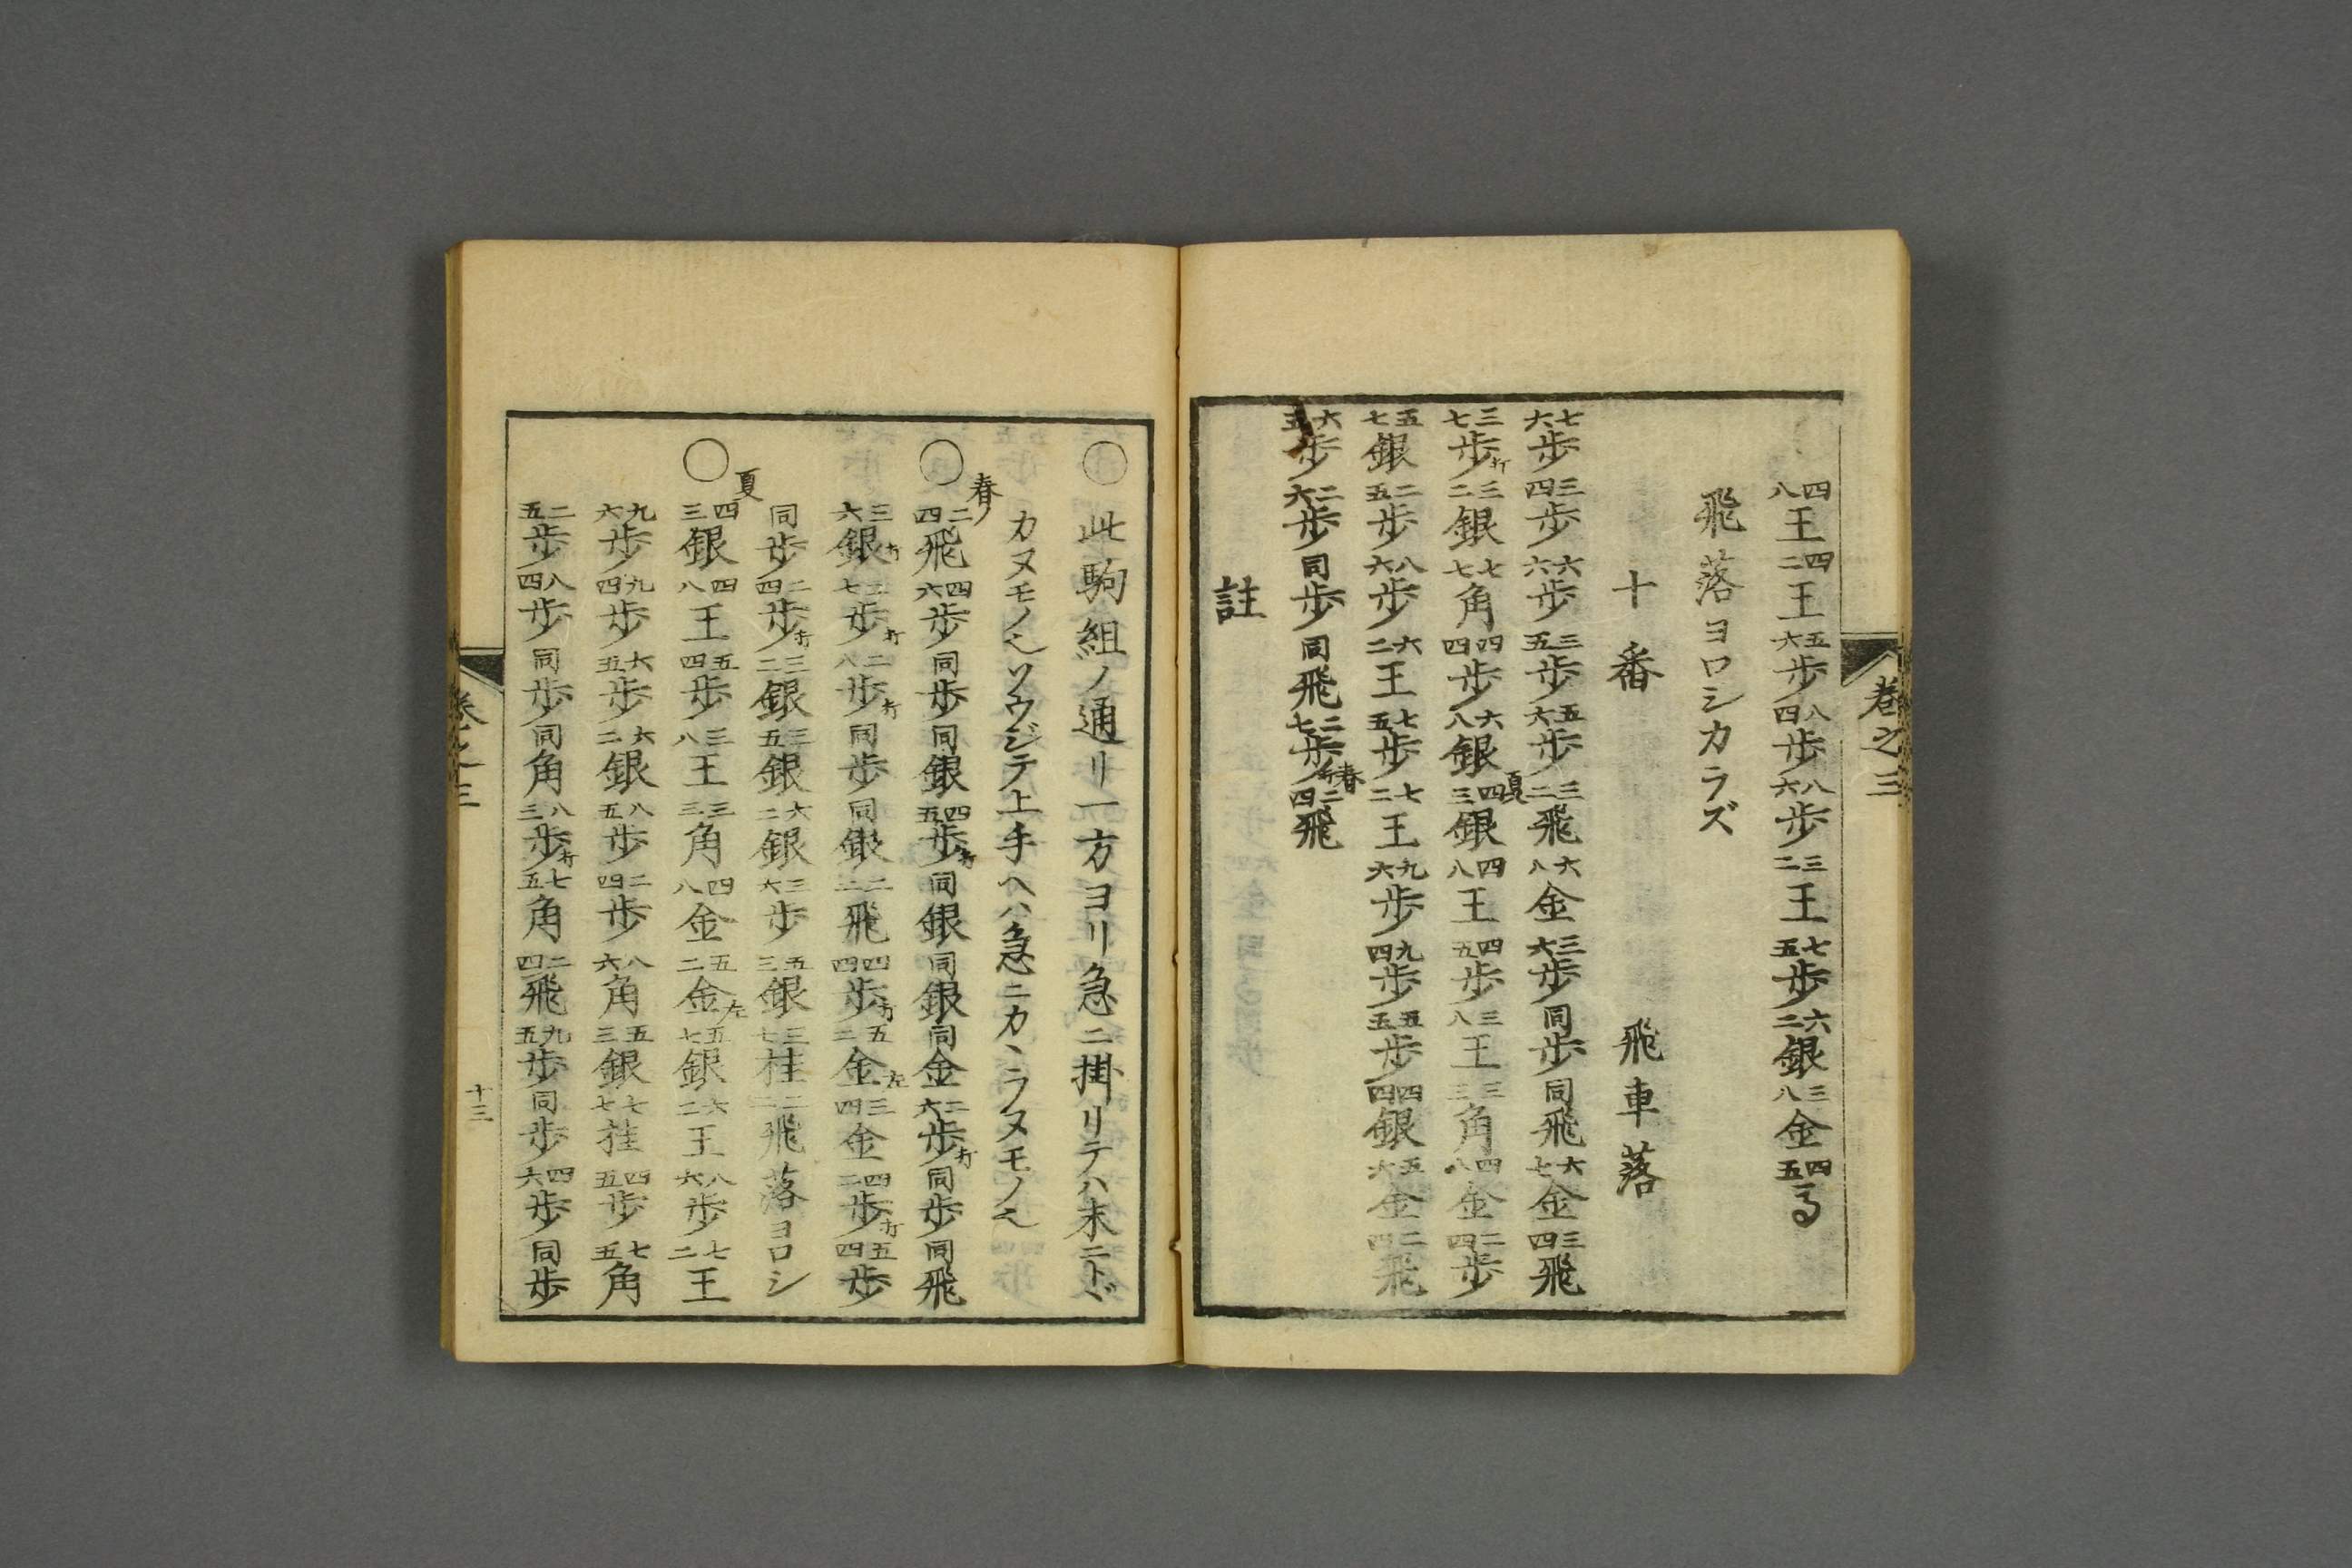 卷之三
四八王四二王五六歩八四歩八六歩三二王七五歩六二銀三八金四五馬
飛落ヨロシカラズ
十番　飛車落
七六歩三四歩六六歩三五歩五六歩三二飛六八金三六歩同歩同飛六七金三四飛
三七歩打三二銀七七角四四歩六八銀夏四三銀四八王四五歩三八王三三角四八金二四歩
五七銀二五歩八六歩六二王七五歩七二王九六歩九四歩五五歩四四銀五六金二四飛
六五歩二六歩同歩同飛二七歩打春二四飛
註
○此駒組ノ通リ一方ヨリ急ニ掛リテハ末ニトヾ
カヌモノ也ソウジテ上手ヘハ急ニカヽラヌモノ也
○春二四飛四六歩同歩同銀四五歩打同銀同銀同金二六歩打同歩同飛
三六銀打三七歩打二八歩打同歩同銀二二飛四四歩打五二金左三四金四二歩打五四歩
同歩二四歩打三二銀三五銀六二銀三六歩五三銀三七桂二二飛落ヨロシ
○夏四三銀四八王五四歩三八王三三角四八金五二金左五七銀六二王八六歩七二王
九六歩九四歩六五歩六二銀八五歩二四歩八六角五三銀七七桂四五歩七五角
二五歩八四歩同歩同角八三歩打七五角二四飛九五歩同歩四六歩同歩
卷之三
十三